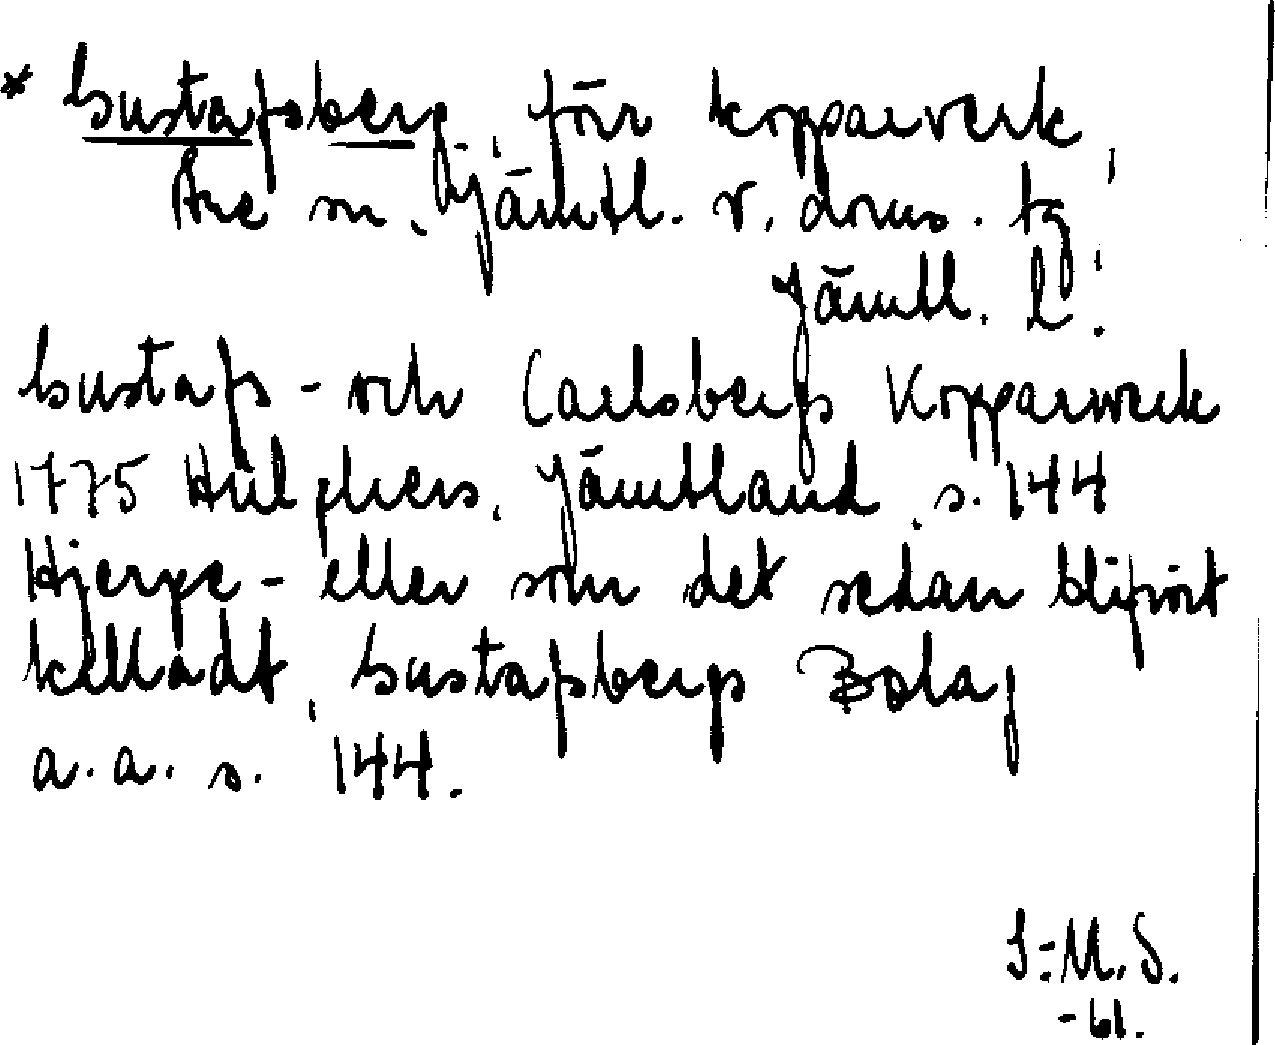 * Gustafsberg, förr kopparverk,
Åre sn, Jämtl. v. doms. tg,
Jämtl. l.
Gustafs- och Carlsbergs Kopparwerk
1775 Hülphers, Jämtland, s. 144
Hjerpe- eller som det sedan blifvit
kalladt, Gustafsbergs Bolag
a.a. s. 144.
I-M.S.
-61.